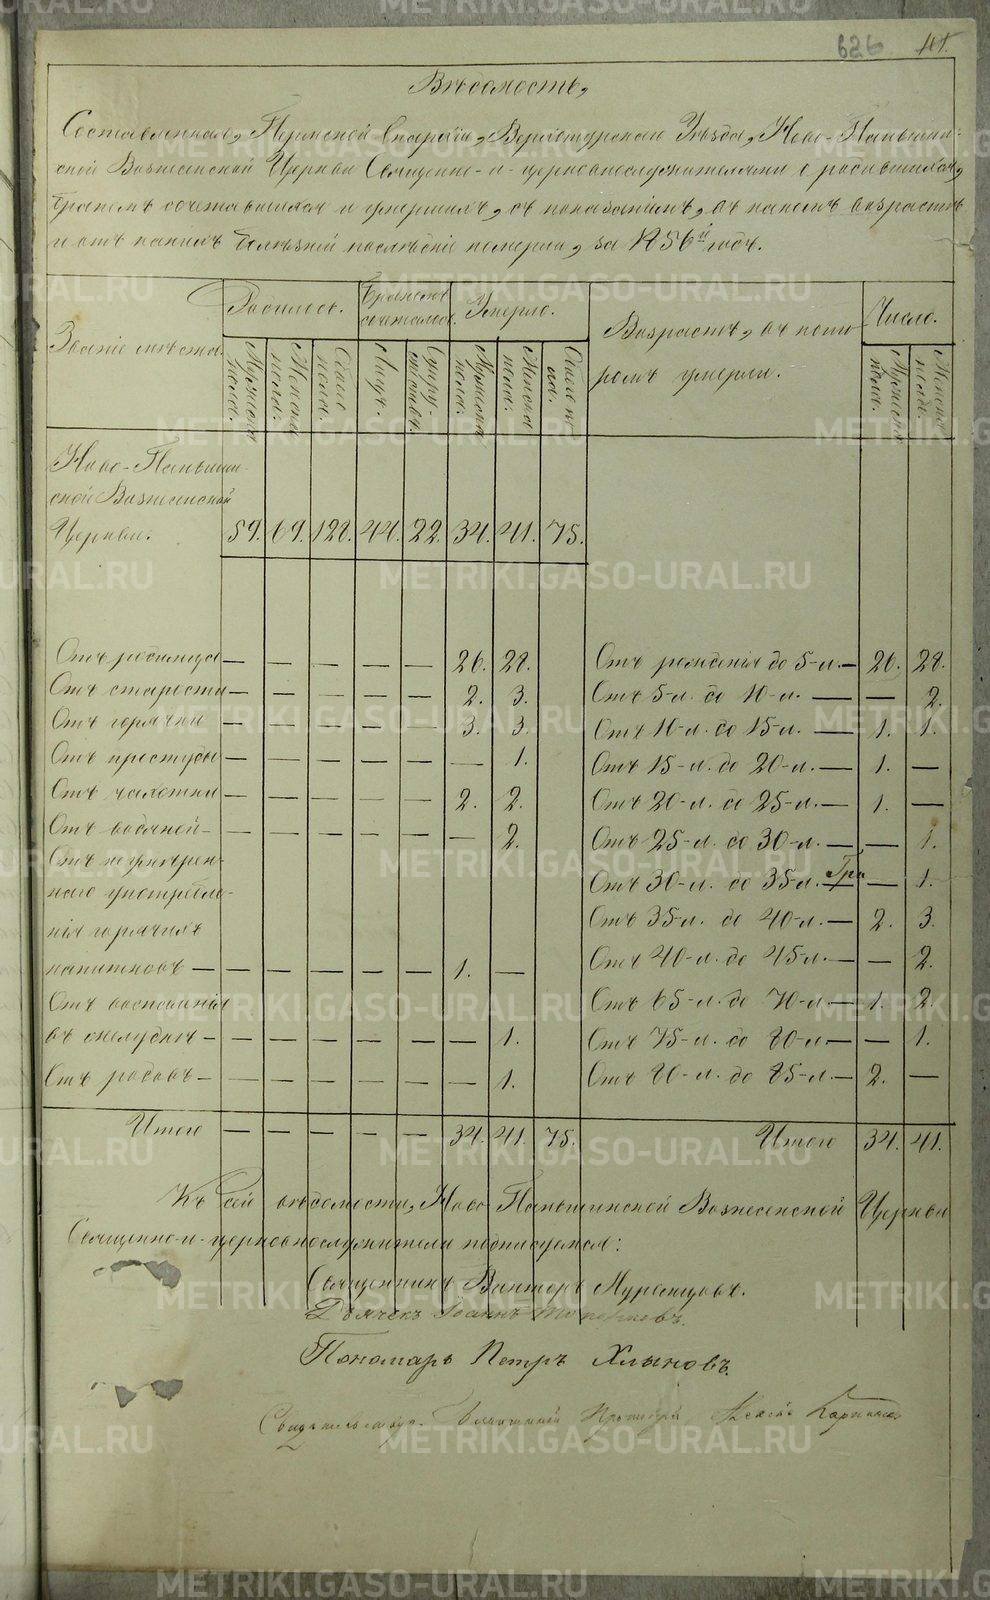 626
Вѣдомость,
Составленная, Пермской Епархіи, Верхотурскаго Уѣзда, Ново-Паньшин-
ской Вознесенской Церкви Священно-и-церковнослужителями о родившихся,
бракомъ сочетавшихся и умершихъ, съ показаніемъ, въ какомъ возрастѣ
и отъ какихъ болѣзней послѣдніе померли, за 1856й годъ.
Званіе мѣста. Родилось. Бракомъ сочеталось. Умерло. Возрастъ, въ кото- Число.
Мужеска пола. Женска пола. Обоего пола. Лицъ. Супружествъ. Мужеска пола. Женска пола. Обоего пола. ромъ умерли. Мужеска пола. Женска пола.
Ново-Паньшин-
ской Вознесенской
Церкви. 59. 69. 128. 44. 22. 34. 41. 75.
Отъ родимца — — — — — 26. 28. Отъ рожденія до 5-л. — 26. 28.
Отъ старости — — — — — 2. 3. Отъ 5-л. до 10-л. — — 2.
Отъ горячки — — — — — 3. 3. Отъ 10-л. до 15-л. — 1. 1.
Отъ простуды — — — — — — 1. Отъ 15-л. до 20-л. — 1. —
Отъ чахотки — — — — — 2. 2. Отъ 20-л. до 25-л. — 1. —
Отъ водяной — — — — — — 2. Отъ 25-л. до 30-л. — — 1.
Отъ неумѣрен-
наго употребле- Отъ 30-л. до 35-л. — — 1.
нія горячихъ Отъ 35-л. до 40-л. — 2. 3.
напитковъ — — — — — 1. — Отъ 40-л. до 45-л. — — 2.
Отъ воспаленія Отъ 65-л. до 70-л. — 1. 2.
въ желудкѣ — — — — — — 1. Отъ 75-л. до 80-л. — — 1.
Отъ родовъ — — — — — — 1. Отъ 80-л. до 85-л. — 2. —
Итого — — — — — 34. 41. 75. Итого 34. 41.
Къ сей вѣдомости, Ново Паньшинской Вознесенской Церкви
Священно-и-церковнослужители подписуемся:
Священникъ Викторъ Муромцовъ.
Дьячекъ Іоаннъ
Пономарь Петръ Хлыновъ.
METRIKI.GASO-URAL.RU